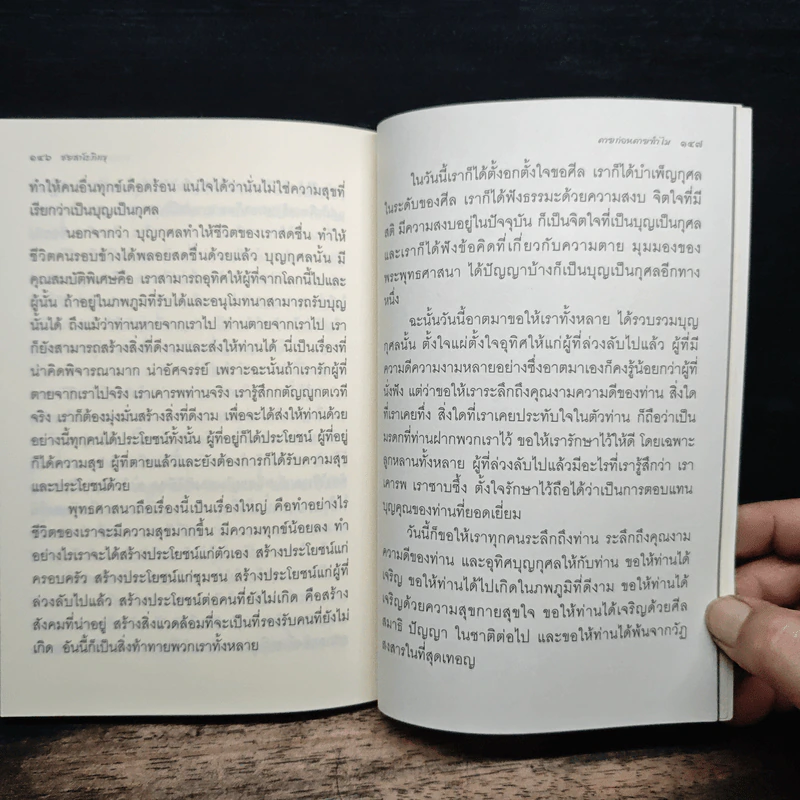 ๑๔๖ ชยสาโรภิกขุ
ทำให้คนอื่นทุกข์เดือดร้อน แน่ใจได้ว่านั่นไม่ใช่ความสุขที่
เรียกว่าเป็นบุญเป็นกุศล
นอกจากว่า บุญกุศลทำให้ชีวิตของเราสดชื่น ทำให้
ชีวิตคนรอบข้างได้พลอยสดชื่นด้วยแล้ว บุญกุศลนั้น มี
คุณสมบัติพิเศษคือ เราสามารถอุทิศให้ผู้ที่จากโลกนี้ไปและ
ผู้นั้น ถ้าอยู่ในภพภูมิที่รับได้และอนุโมทนาสามารถรับบุญ
นั้นได้ ถึงแม้ว่าท่านหายจากเราไป ท่านตายจากเราไป เรา
ก็ยังสามารถสร้างสิ่งที่ดีงามและส่งให้ท่านได้ นี่เป็นเรื่องที่
น่าคิดพิจารณามาก น่าอัศจรรย์ เพราะฉะนั้นถ้าเรารักผู้ที่
ตายจากเราไปจริง เราเคารพท่านจริง เรารู้สึกกตัญญูกตเวที
จริง เราก็ต้องมุ่งมั่นสร้างสิ่งที่ดีงาม เพื่อจะได้ส่งให้ท่านด้วย
อย่างนี้ทุกคนได้ประโยชน์ทั้งนั้น ผู้ที่อยู่ก็ได้ประโยชน์ ผู้ที่อยู่
ก็ได้ความสุข ผู้ที่ตายแล้วและยังต้องการก็ได้รับความสุข
และประโยชน์ด้วย
พุทธศาสนาถือเรื่องนี้เป็นเรื่องใหญ่ คือทำอย่างไร
ชีวิตของเราจะมีความสุขมากขึ้น มีความทุกข์น้อยลง ทำ
อย่างไรเราจะได้สร้างประโยชน์แก่ตัวเอง สร้างประโยชน์แก่
ครอบครัว สร้างประโยชน์แก่ชุมชน สร้างประโยชน์แก่ผู้ที่
ล่วงลับไปแล้ว สร้างประโยชน์ต่อคนที่ยังไม่เกิด คือสร้าง
สังคมที่น่าอยู่ สร้างสิ่งแวดล้อมที่จะเป็นที่รองรับคนที่ยังไม่
เกิด อันนี้ก็เป็นสิ่งท้าทายพวกเราทั้งหลาย
ตายก่อนตายชักไม ๑๔๗
ในวันนี้เราก็ได้ตั้งอกตั้งใจขอศีล เราก็ได้บำเพ็ญกุศล
ในระดับของศีล เราก็ได้ฟังธรรมะด้วยความสงบ จิตใจที่มี
สติ มีความสงบอยู่ในปัจจุบัน ก็เป็นจิตใจที่เป็นบุญเป็นกุศล
และเราก็ได้ฟังข้อคิดที่เกี่ยวกับความตาย มุมมองของ
พระพุทธศาสนา ได้ปัญญาบ้างก็เป็นบุญเป็นกุศลอีกทาง
หนึ่ง
ฉะนั้นวันนี้อาตมาขอให้เราทั้งหลาย ได้รวบรวมบุญ
กุศลนั้น ตั้งใจแผ่ตั้งใจอุทิศให้แก่ผู้ที่ล่วงลับไปแล้ว ผู้ที่มี
ความดีความงามหลายอย่างซึ่งอาตมาเองก็คงรู้น้อยกว่าผู้ที่
นั่งฟัง แต่ว่าขอให้เราระลึกถึงคุณงามความดีของท่าน สิ่งใด
ที่เราเคยทึ่ง สิ่งใดที่เราเคยประทับใจในตัวท่าน ก็ถือว่าเป็น
มรดกที่ท่านฝากพวกเราไว้ ขอให้เรารักษาไว้ให้ดี โดยเฉพาะ
ลูกหลานทั้งหลาย ผู้ที่ล่วงลับไปแล้วมีอะไรที่เรารู้สึกว่า เรา
เคารพ เราซาบซึ้ง ตั้งใจรักษาไว้ถือได้ว่าเป็นการตอบแทน
บุญคุณของท่านที่ยอดเยี่ยม
วันนี้ก็ขอให้เราทุกคนระลึกถึงท่าน ระลึกถึงคุณงาม
ความดีของท่าน และอุทิศบุญกุศลให้กับท่าน ขอให้ท่านได้
เจริญ ขอให้ท่านได้ไปเกิดในภพภูมิที่ดีงาม ขอให้ท่านได้
เจริญด้วยความสุขกายสุขใจ ขอให้ท่านได้เจริญด้วยศีล
สมาธิ ปัญญา ในชาติต่อไป และขอให้ท่านได้พ้นจากวัฏ
สงสารในที่สุดเทอญ